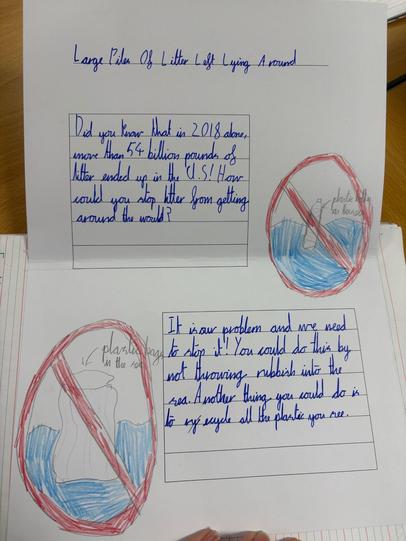 Large Piles Of Litter Left Lying Around
Did you know that in 2018 alone,
more than 54 billion pounds of
litter ended up in the U.S! How
could you stop litter from getting
around the would?
plastic
plastic bags
in the sea
It is our problem and we need
to stop it! You could do this by
not throwing rubbish into the
sea. Another thing you could do is
to recycle all the plastic you see.